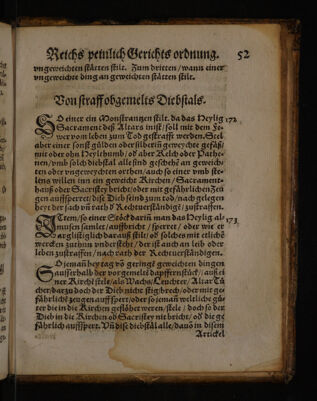 Reichs peinlich Gerichts ordnung. 52
vngeweichten stätten stilt. Zum dritten/wann einer
vngeweichte ding an geweichten stätten stilt.
Von straff obgemelts Diebstals.
SO einer ein Monstrantzen stilt. da das Heylig 172
Sacrament deß Altars inist/soll mit dem fe-
wer vom leben zum Tod gestrafft werden. Stel
aber einer sonst gülden oder silberin geweychte gefäß/
mit oder ohn Heylthumb/ oder Kelch oder Pathe-
nen/vmb solch diebstäl alle sind geschehe an geweich-
ten oder vngeweychten orthen/ auch so einer vmb ste-
lens willen inn ein geweicht Kirchen/Sacrament-
hauß oder Sacristey bricht/oder mit gefährlichen Zeu
gen auffsperret/ diese Dieb seind zum tod/nach gelegen
heyt der sach vñ rath d' Rechtverständigē/zustraffen.
ITem/so einer Stöck darin man das Heylig al- 173
musen samlet/auffbricht/sperret/ oder wie er
arglistiglich darauß stilt/ oð solches mit etlichē
wercken zuthun vndersteht/ der ist auch an leib oder
leben zustraffen/nach rath der Rechtverständigen.
SO jemand bey tag võ geringē geweichten dingen
ausserhalb der vorgemelten dapffern stück/ auß ei-
ner Kirchē stele/als Wachs/Leuchter/Altar Tü
cher/darzu doch der Dieb nicht stig/brech/oder mit ge-
fährlichē zeugen auffsperr/oder so jemand weltliche gü-
ter die in die Kirchen geflöhet weren/stele/doch so der
Dieb in die Kirchen oð Sacristey nit bricht/oð die ge
fährlich auffsperr. Vñ dise diebstäl alle/dauõ in disem
Artickel